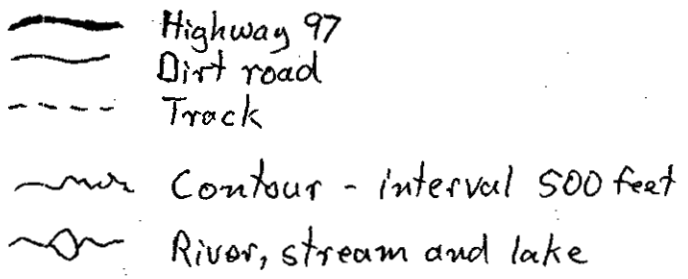 Highway 97
Dirt road
Track
Contour - interval 500 feet
River, stream and lake